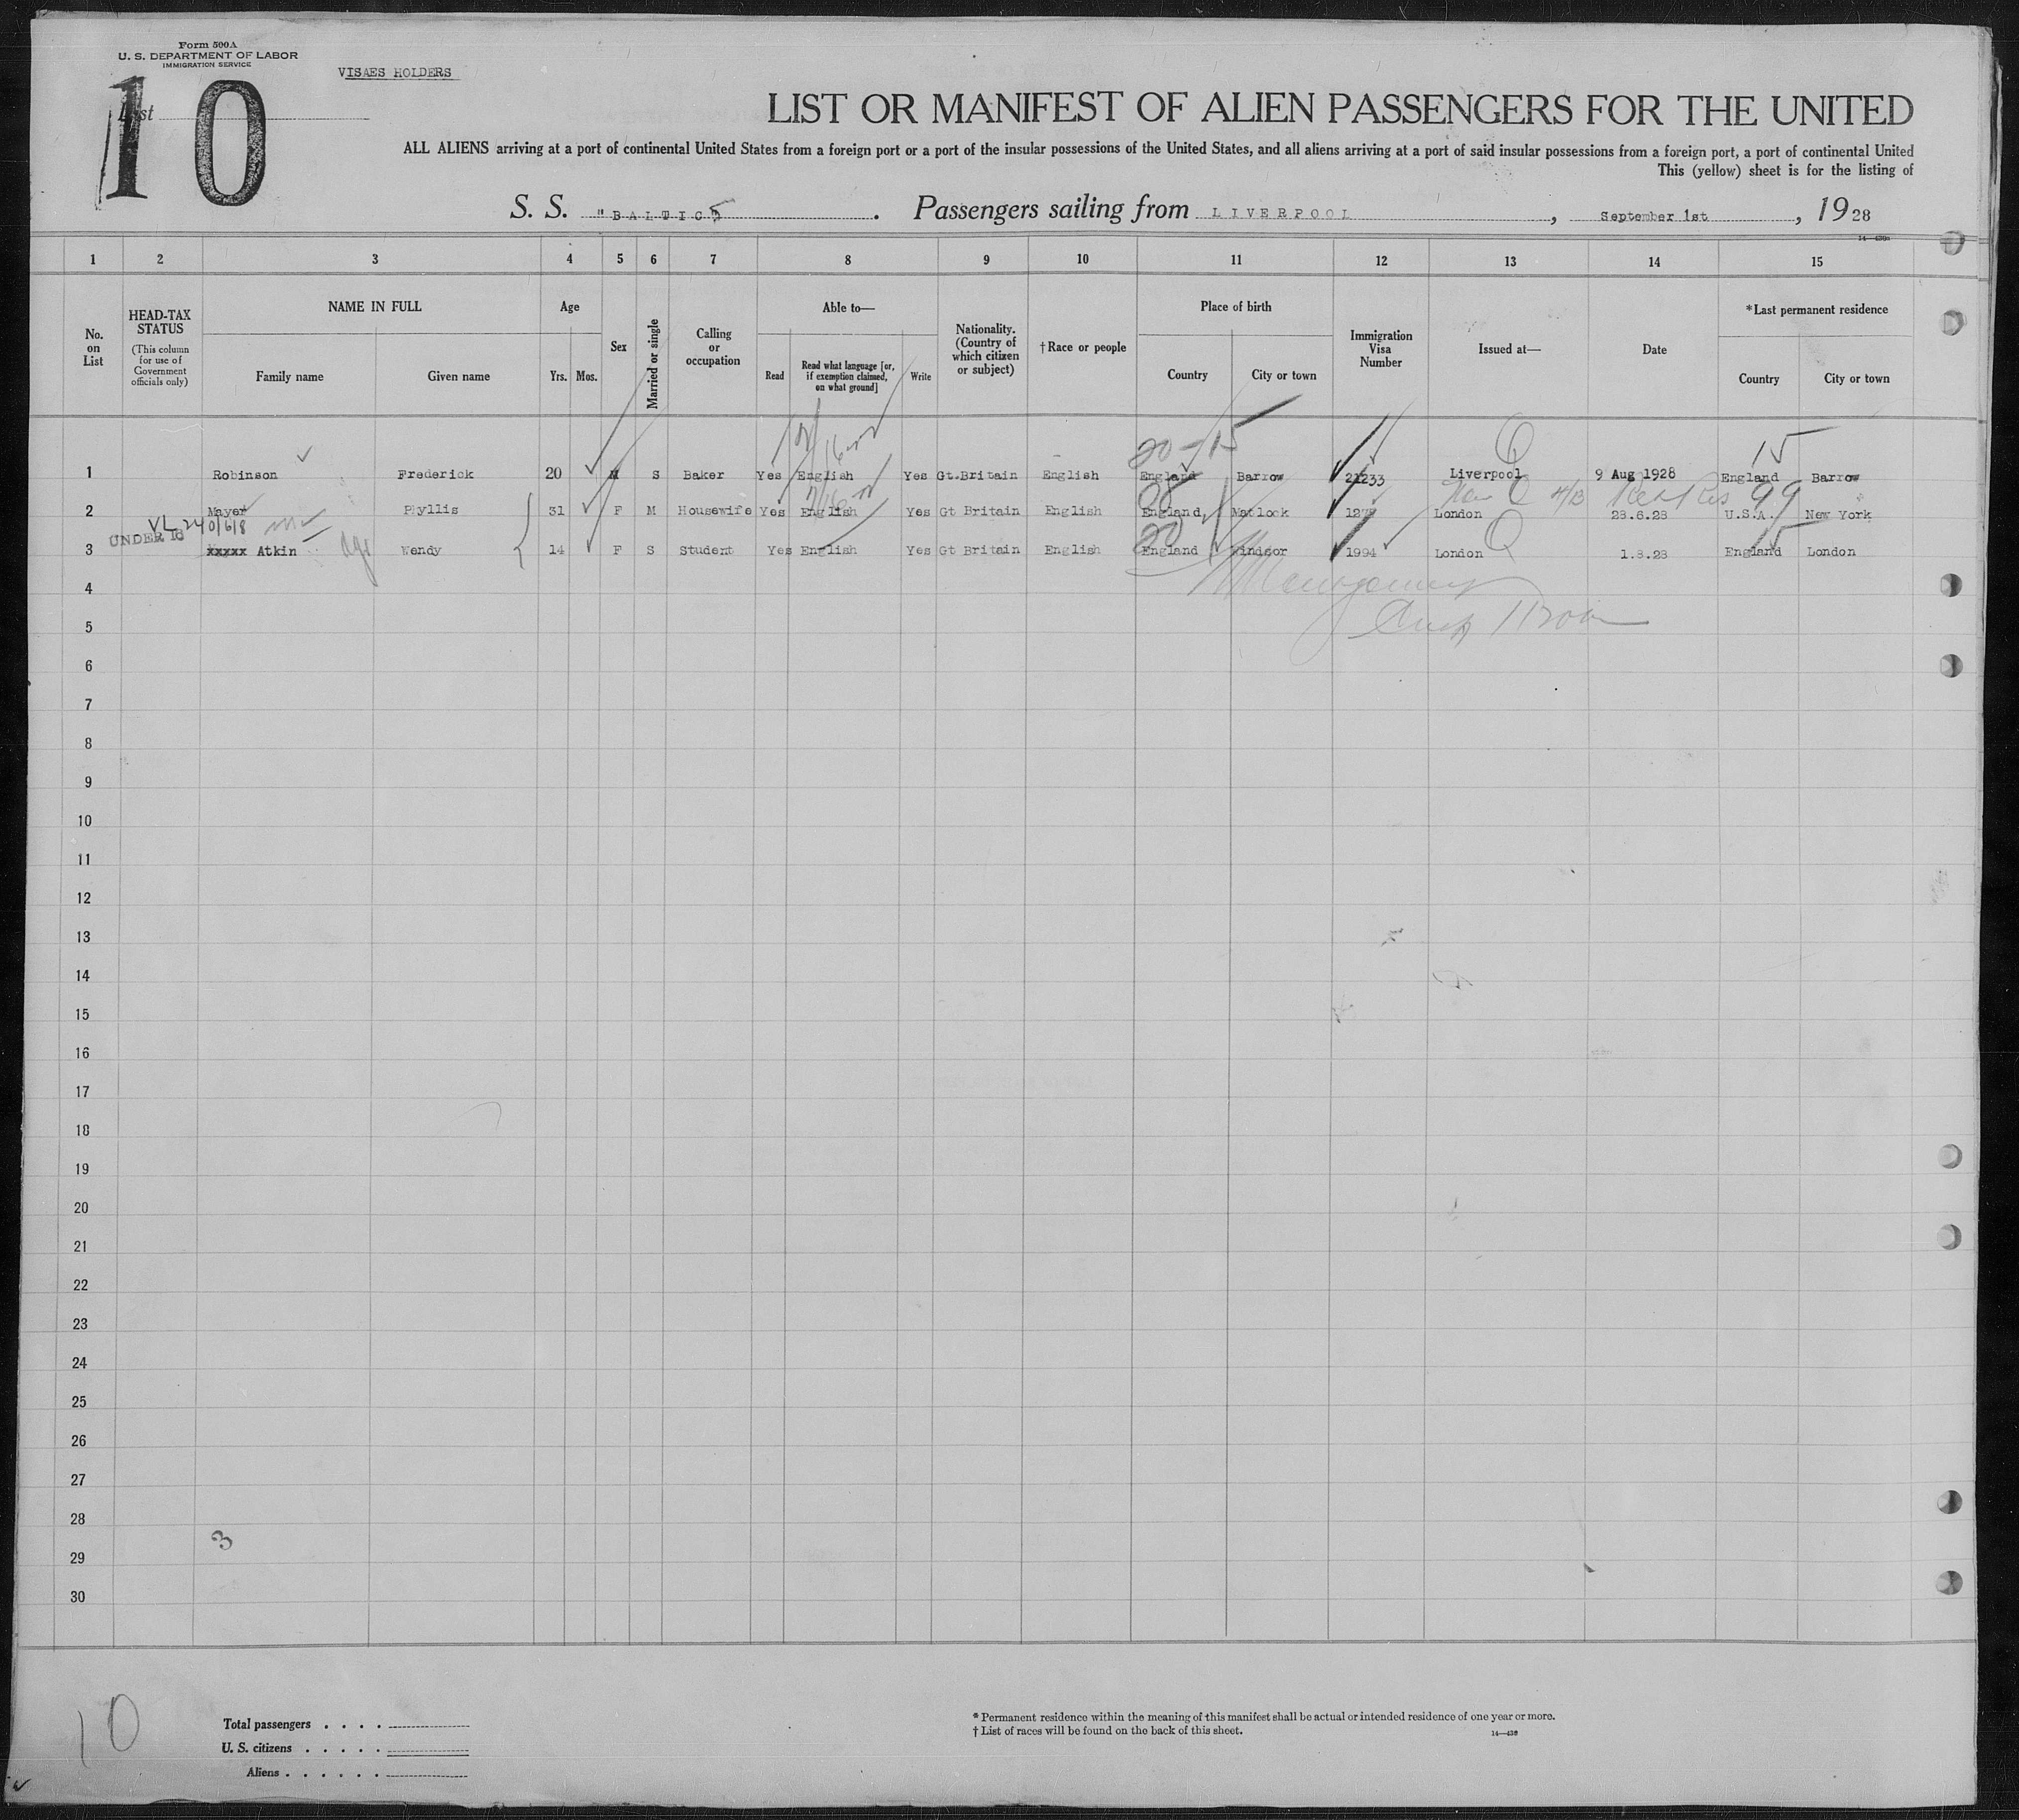 Form 500A
U. S. DEPARTMENT OF LABOR
IMMIGRATION SERVICE
VISAES HOLDERS
List
10
LIST OR MANIFEST OF ALIEN PASSENGERS FOR THE UNITED
ALL ALIENS arriving at a port of continental United States from a foreign port or a port of the insular possessions of the United States, and all aliens arriving at a port of said insular possessions from a foreign port, a port of continental United
This (yellow) sheet is for the listing of
S. S. "BALTIC" . Passengers sailing from LIVERPOOL , September 1st , 1928
1 2 3 4 5 6 7 8 9 10 11 12 13 14 15
No. on List
HEAD-TAX STATUS
(This column for use of Government officials only)
NAME IN FULL
Family name Given name
Age
Yrs. Mos.
Sex
Married or single
Calling or occupation
Able to—
Read
Read what language [or, if exemption claimed, on what ground]
Write
Nationality. (Country of which citizen or subject)
†Race or people
Place of birth
Country City or town
Immigration Visa Number
Issued at—
Date
*Last permanent residence
Country City or town
20-15
15
1 Robinson Frederick 20 M S Baker Yes English Yes Gt.Britain English England Barrow 21233 Liverpool 9 Aug 1928 England Barrow
99
2 Mayer Phyllis 31 F M Housewife Yes English Yes Gt Britain English England Matlock London 28.6.28 U.S.A. New York
UNDER 16
3 xxxxx Atkin Wendy 14 F S Student Yes English Yes Gt Britain English England Windsor 1994 London 1.8.28 England London
4
5
6
7
8
9
10
11
12
13
14
15
16
17
18
19
20
21
22
23
24
25
26
27
28
3
29
30
10
Total passengers . . . .
U. S. citizens . . . . .
Aliens . . . . . .
* Permanent residence within the meaning of this manifest shall be actual or intended residence of one year or more.
† List of races will be found on the back of this sheet.
14—438